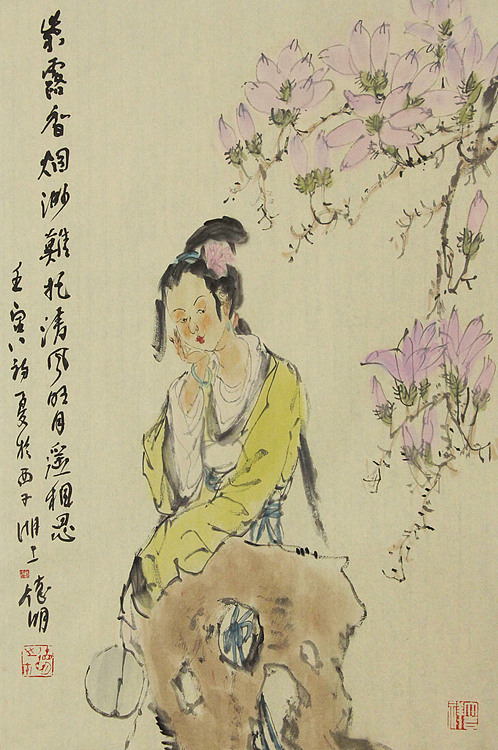 紫露香烟渺難托清风明月遥相思
壬寅初夏於西子湖上 明